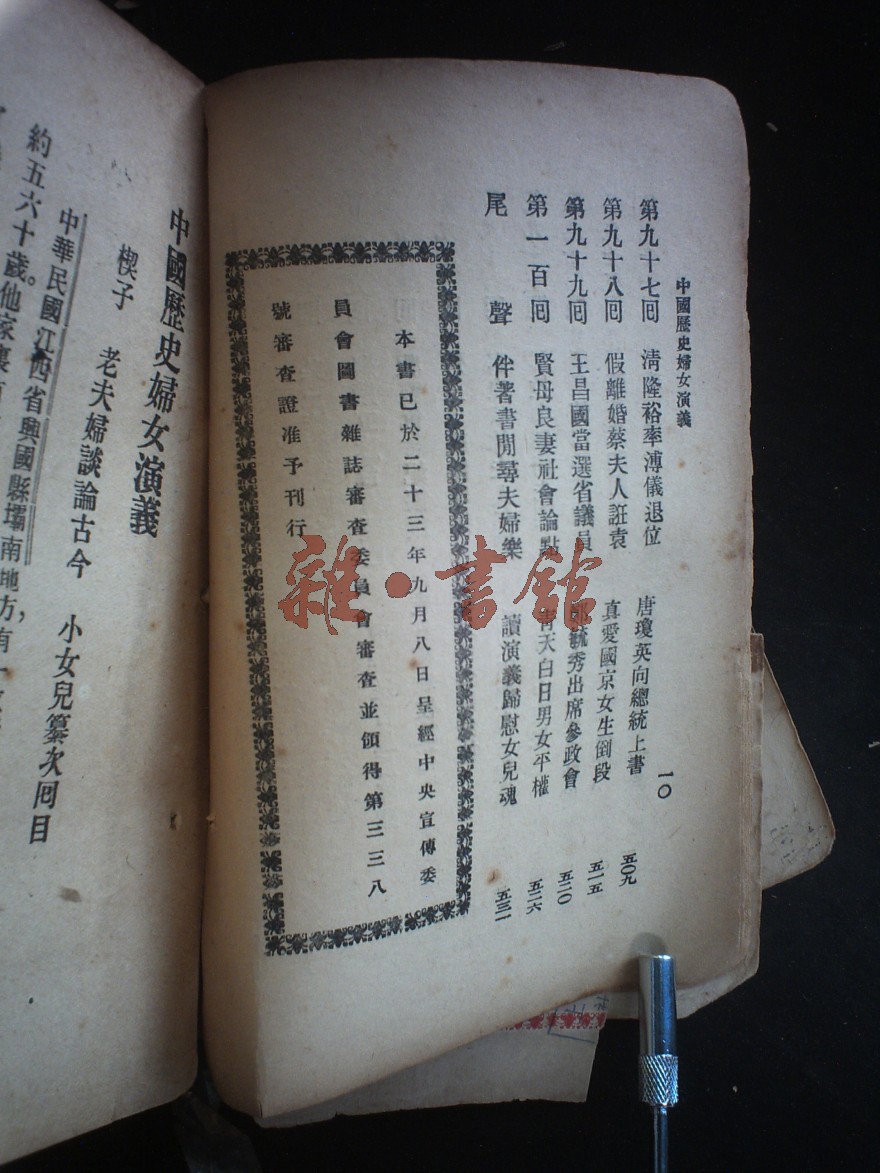 中國歷史婦女演義
一〇
第九十七回 清隆裕率溥儀退位 唐瓊英向總統上書 五〇九
第九十八回 假離婚蔡夫人誑袁 真愛國京女生倒段 五一五
第九十九回 王昌國當選省議員 毓秀出席參政會 五二〇
第一百回 賢母良妻社會論點 青天白日男女平權 五二六
尾聲 伴著書閒尋夫婦樂 讀演義歸慰女兒魂 五三一
本書已於二十三年九月八日呈經中央宣傳委
員會圖書雜誌審查委員會審查並領得第三三八
號審查證准予刊行
中國歷史婦女演義
楔子 老夫婦談論古今 小女兒纂次回目
中華民國江西省興國縣壩南地方有一
約五六十歲。他家裏
雜·書館